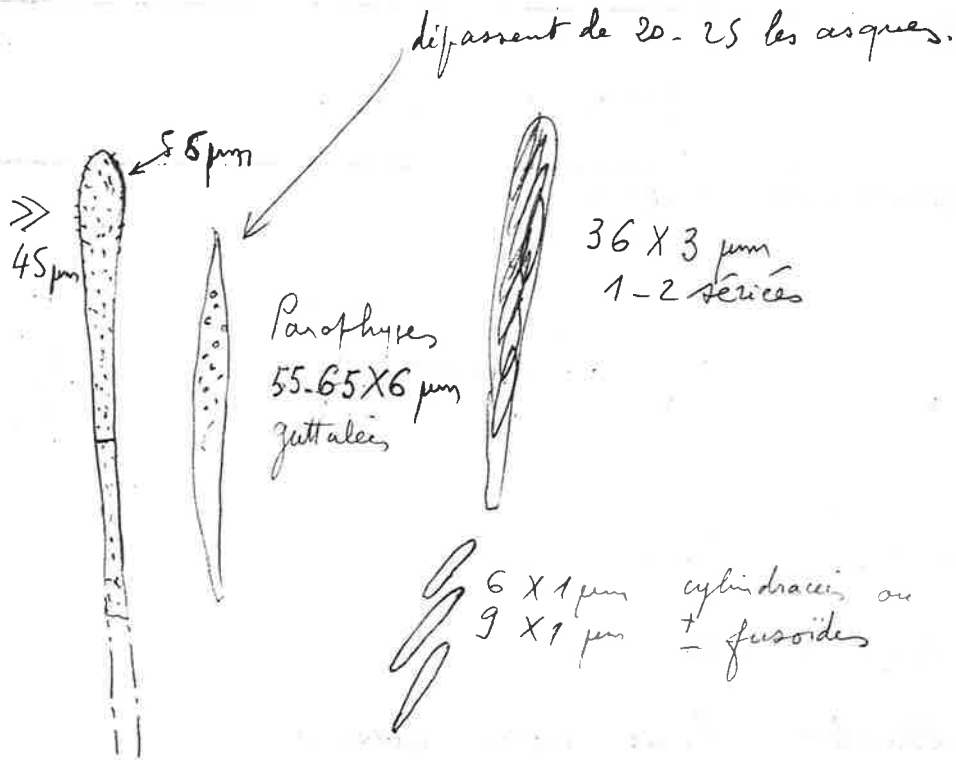 dépassent de 20-25 les asques.
5 6 µm
≫
45 µm
Paraphyses
55-65 X 6 µm
guttulées
36 X 3 µm
1-2 sériés
6 X 1 µm cylindracées ou
9 X 1 µm ± fusoïdes